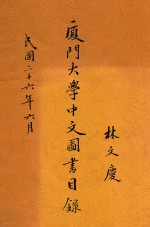 廈門大學中文圖書目錄
林文慶
民國二十六年六月